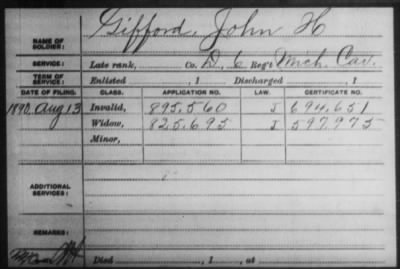 NAME OF SOLDIER: Gifford, John H
SERVICE: Late rank, Co. D, 6 Reg't Mich. Cav.
TERM OF SERVICE: Enlisted , 1 Discharged , 1
DATE OF FILING. CLASS. APPLICATION NO. LAW. CERTIFICATE NO.
1890, Aug 13 Invalid, 895.560 J 694.651
Widow, 825.695 J 597.975
Minor,
ADDITIONAL SERVICES:
REMARKS:
Died , 1 , at